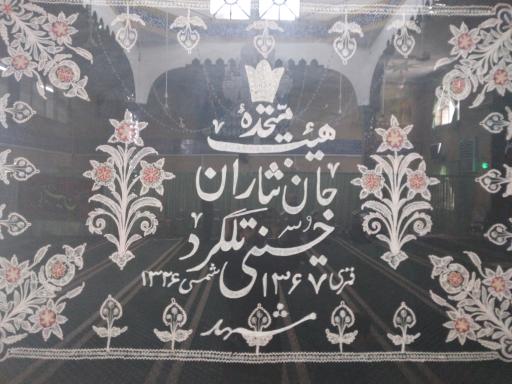 هیئت متحّدهٔ
جان نثاران
حسنیّ و سر تلگرد
قمری ۱۳۶۷ شمسی ۱۳۲۶
مشهد